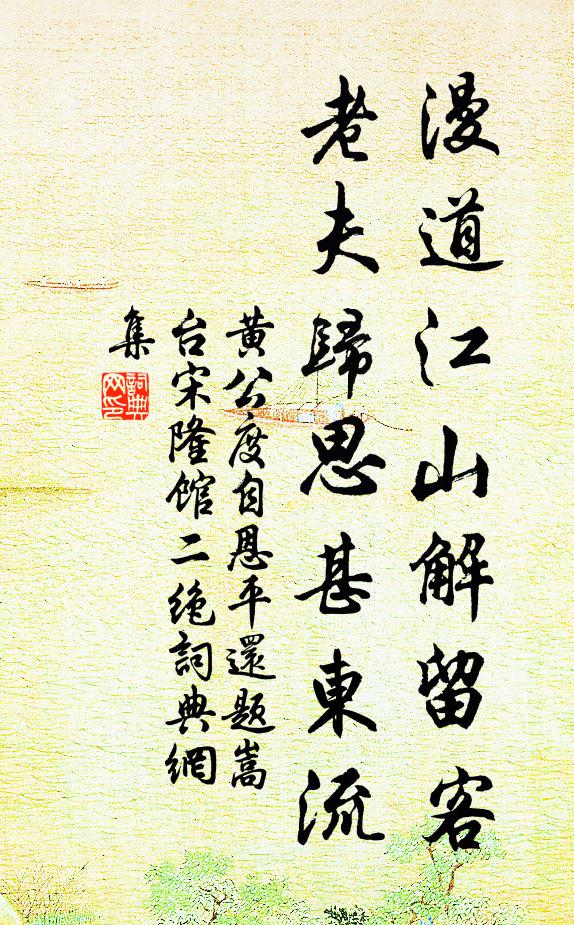 漫道江山解留客
老夫歸思甚東流
黄公度自恩平還題嵩
台宋隆馆二绝詞典網
集
詞典
网印